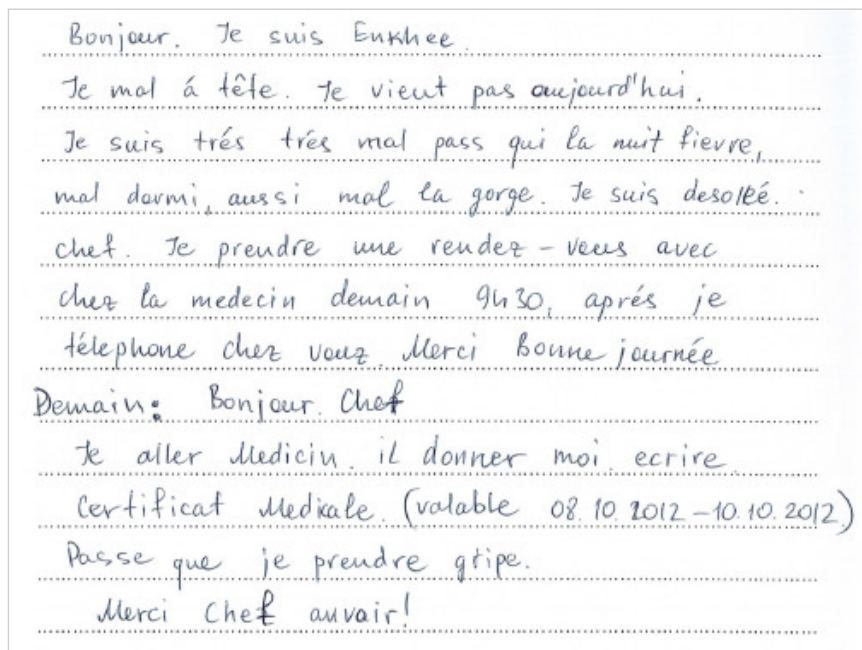 Bonjour. Je suis Enkhee.
Je mal á tête. Je vient pas aujourd'hui.
Je suis trés trés mal pass qui la nuit fievre,
mal dormi, aussi mal la gorge. Je suis desolé.
chef. Je prendre une rendez-vous avec
chez la medecin demain 9h30, aprés je
télephone chez vouz. Merci Bonne journée
Demain: Bonjour. Chef
Je aller Medicin. il donner moi ecrire
Certificat Medicale. (valable 08.10.2012-10.10.2012)
Passe que je prendre gripe.
Merci Chef auvair!